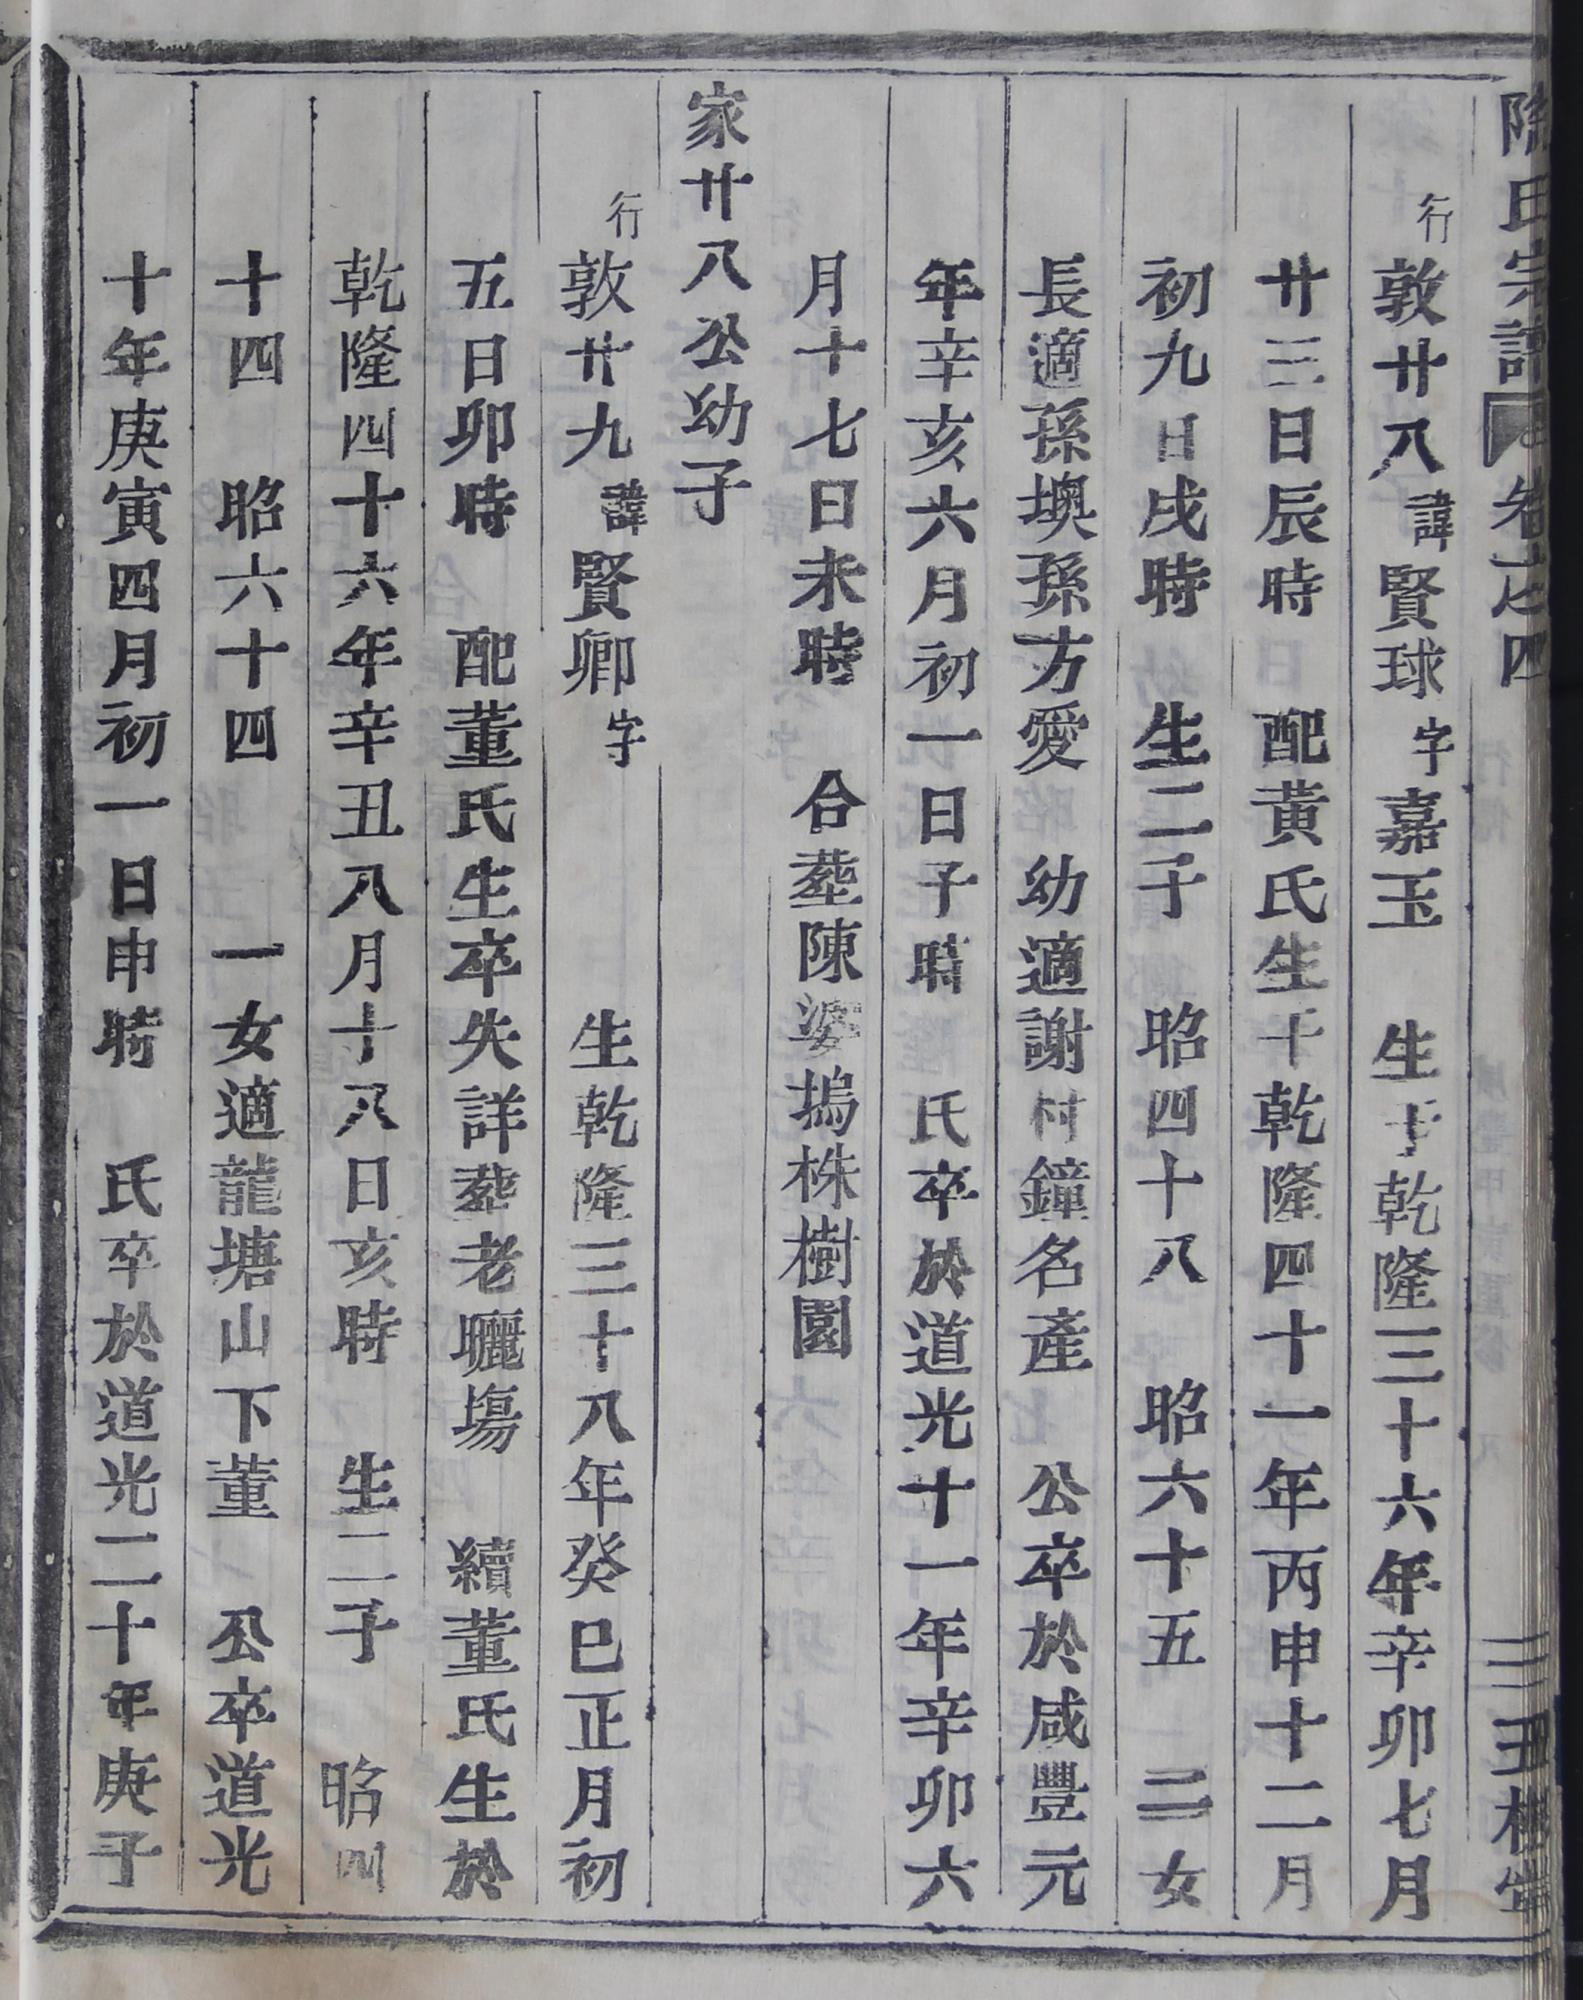 氏宗譜 卷之四 三玉樹堂
行敦廿八諱賢球字嘉玉 生于乾隆三十六年辛卯七月
廿三日辰時 配黃氏生于乾隆四十一年丙申十二月
初九日戌時 生二子 昭四十八 昭六十五 二女
長適孫墺孫方愛 幼適謝村鐘名產 公卒於咸豐元
年辛亥六月初一日子時 氏卒於道光十一年辛卯六
月十七日未時 合塟陳婆塢株樹園
家廿八公幼子
行敦廿九諱賢卿字 生乾隆三十八年癸巳正月初
五日卯時 配董氏生卒失詳塟老曬塲 續董氏生於
乾隆四十六年辛丑八月十八日亥時 生二子 昭四
十四 昭六十四 一女適龍塘山下董 公卒道光
十年庚寅四月初一日申時 氏卒於道光二十年庚子